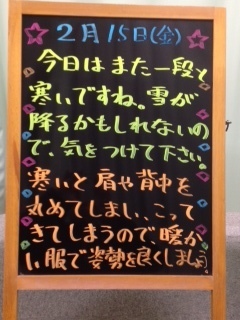 2月15日(金)
今日はまた一段と
寒いですね。雪が
降るかもしれないの
で、気をつけて下さい。
寒いと肩や背中を
丸めてしまい、こって
きてしまうので暖か
い服で姿勢を良くしましょう。